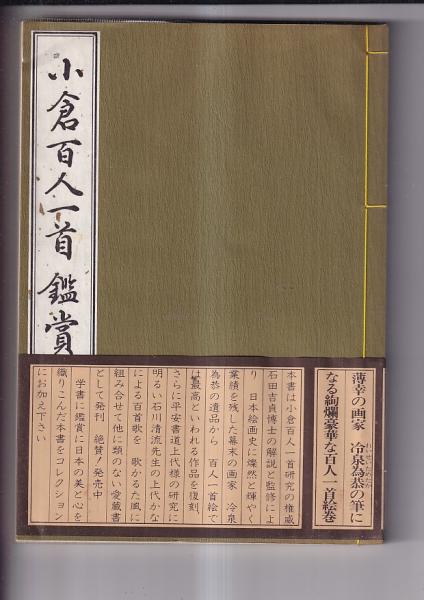 小倉百人一首 鑑賞
薄幸の画家 冷泉為恭の筆に
れいぜいためたか
なる絢爛豪華な百人一首絵巻
本書は小倉百人一首研究の権威
石田吉貞博士の解説と監修によ
り 日本絵画史に燦然と輝やく
業績を残した幕末の画家 冷泉
為恭の遺品から 百人一首絵で
は最高といわれる作品を復刻、
さらに平安書道上代様の研究に
明るい石川清流先生の上代かな
による百首歌を 歌かるた風に
組み合せて他に類のない愛蔵書
として発刊 絶賛!発売中
学書に鑑賞に日本の美と心を
織りこんだ本書をコレクション
にお加え下さい